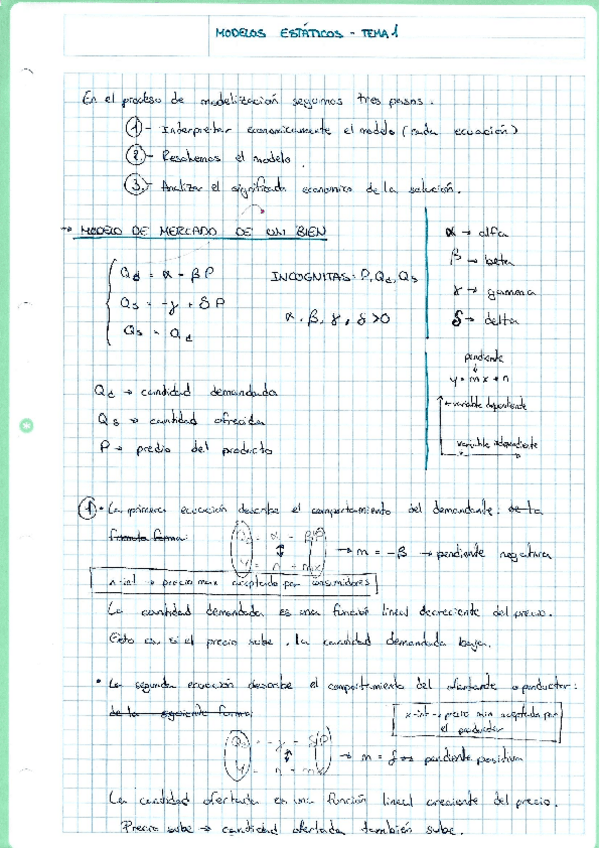 MODELOS ESTÁTICOS - TEMA 1
En el proceso de modelización seguimos tres pasos.
1 - Interpretar económicamente el modelo (cada ecuación)
2 - Resolvemos el modelo.
3 - Analizar el significado económico de la solución.
→ MODELO DE MERCADO DE UN BIEN
Qd = α - βP
Qs = -γ + δP
Qs = Qd
INCOGNITAS: P, Qd, Qs
α, β, γ, δ > 0
α → alfa
β → beta
γ → gamma
δ → delta
pendiente
y = mx + n
variable dependiente
variable independiente
Qd → cantidad demandada
Qs → cantidad ofrecida
P → precio del producto
1 • La primera ecuación describe el comportamiento del demandante: de la
forma:
Qd = α - βP
Y = n + mx
→ m = -β → pendiente negativa
x-int → precio max aceptado por consumidores
La cantidad demandada es una función lineal decreciente del precio.
Esto es, si el precio sube, la cantidad demandada baja.
• La segunda ecuación describe el comportamiento del ofertante o productor:
de la siguiente forma:
x-int → precio min aceptado por
el productor
Qs = -γ + δP
Y = n + mx
→ m = δ → pendiente positiva
La cantidad ofertada es una función lineal creciente del precio.
Precio sube → cantidad ofertada también sube.